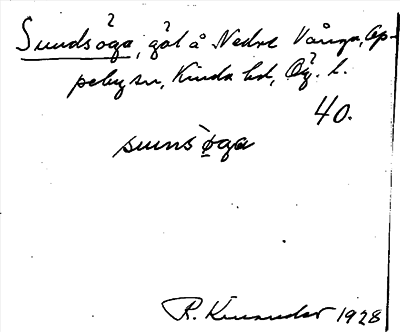 Sundsöga, göl å Nedre Vånga, Op-
peby sn, Kinda hd, Ög. l.
40.
sunsøga
R. Kinander 1928